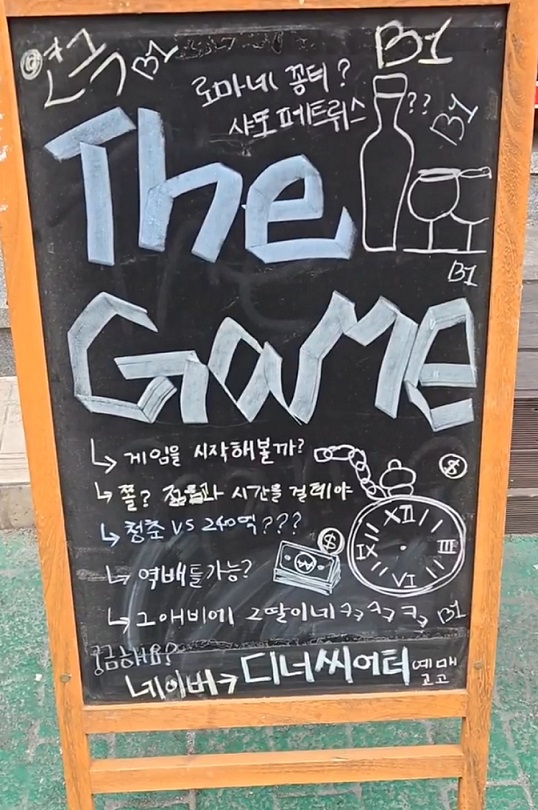 연극 B1
B1
로마네 꽁티?
샤또 페트뤼스 ??
B1
The
B1
Game
게임을 시작해볼까?
쫄? 젊음과 시간을 걸테야
$
청춘 VS 240억???
XII
III
VI
IX
$
₩
역배틀가능?
그애비에 그딸이네 ㅋㅋㅋ B1
궁금해요?
네이버→ 디너씨어터 예매
고고